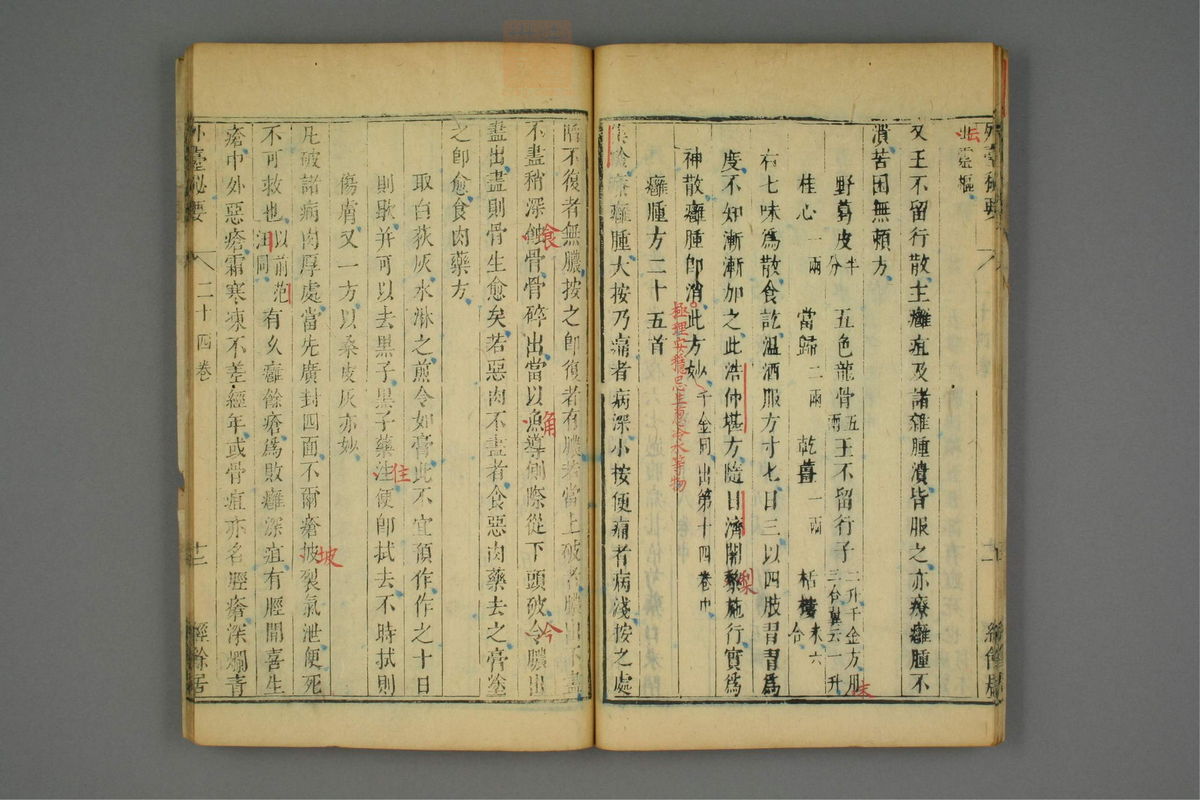 並靈樞
又王不留行散主癰疽及諸雜腫潰皆服之亦療癰腫不
潰苦困無賴方
野葛皮半分 五色龍骨五兩 王不留行子二升千金方用三合翼云一升
桂心一兩 當歸二兩 乾薑一兩 栝樓末六合
右七味為散食訖溫酒服方寸七日三以四肢習習為
度不知漸漸加之此浩仲堪方隨日濟闍黎施行實為
神散癰腫即消此方妙千金同出第十四卷中
極理安穩忌生蔥冷水等物
癰腫方二十五首
集驗療癰腫大按乃痛者病深小按便痛者病淺按之處
陷不復者無膿按之即復者有膿者當上破者膿出不盡
不盡稍深蝕骨骨碎出當以漁導側際從下頭破令膿出
盡出盡則骨生愈矣若惡肉不盡者食惡肉藥去之膏塗
之即愈食肉藥方
取白荻灰水淋之煎令如膏此不宜預作作之十日
則歇并可以去黑子黑子藥注便即拭去不時拭則
傷膚又一方以桑皮灰亦妙
凡破諸病肉厚處當先廣封四面不爾瘡披裂氣泄便死
不可救也以前范汪同 有久癰餘瘡為敗癰深疽有脛間喜生
瘡中外惡瘡霜寒凍不差經年或骨疽亦名脛瘡深爛青
外臺秘要 二十四卷 十二 經餘居
食
角
令
住
坡
梨
末
去